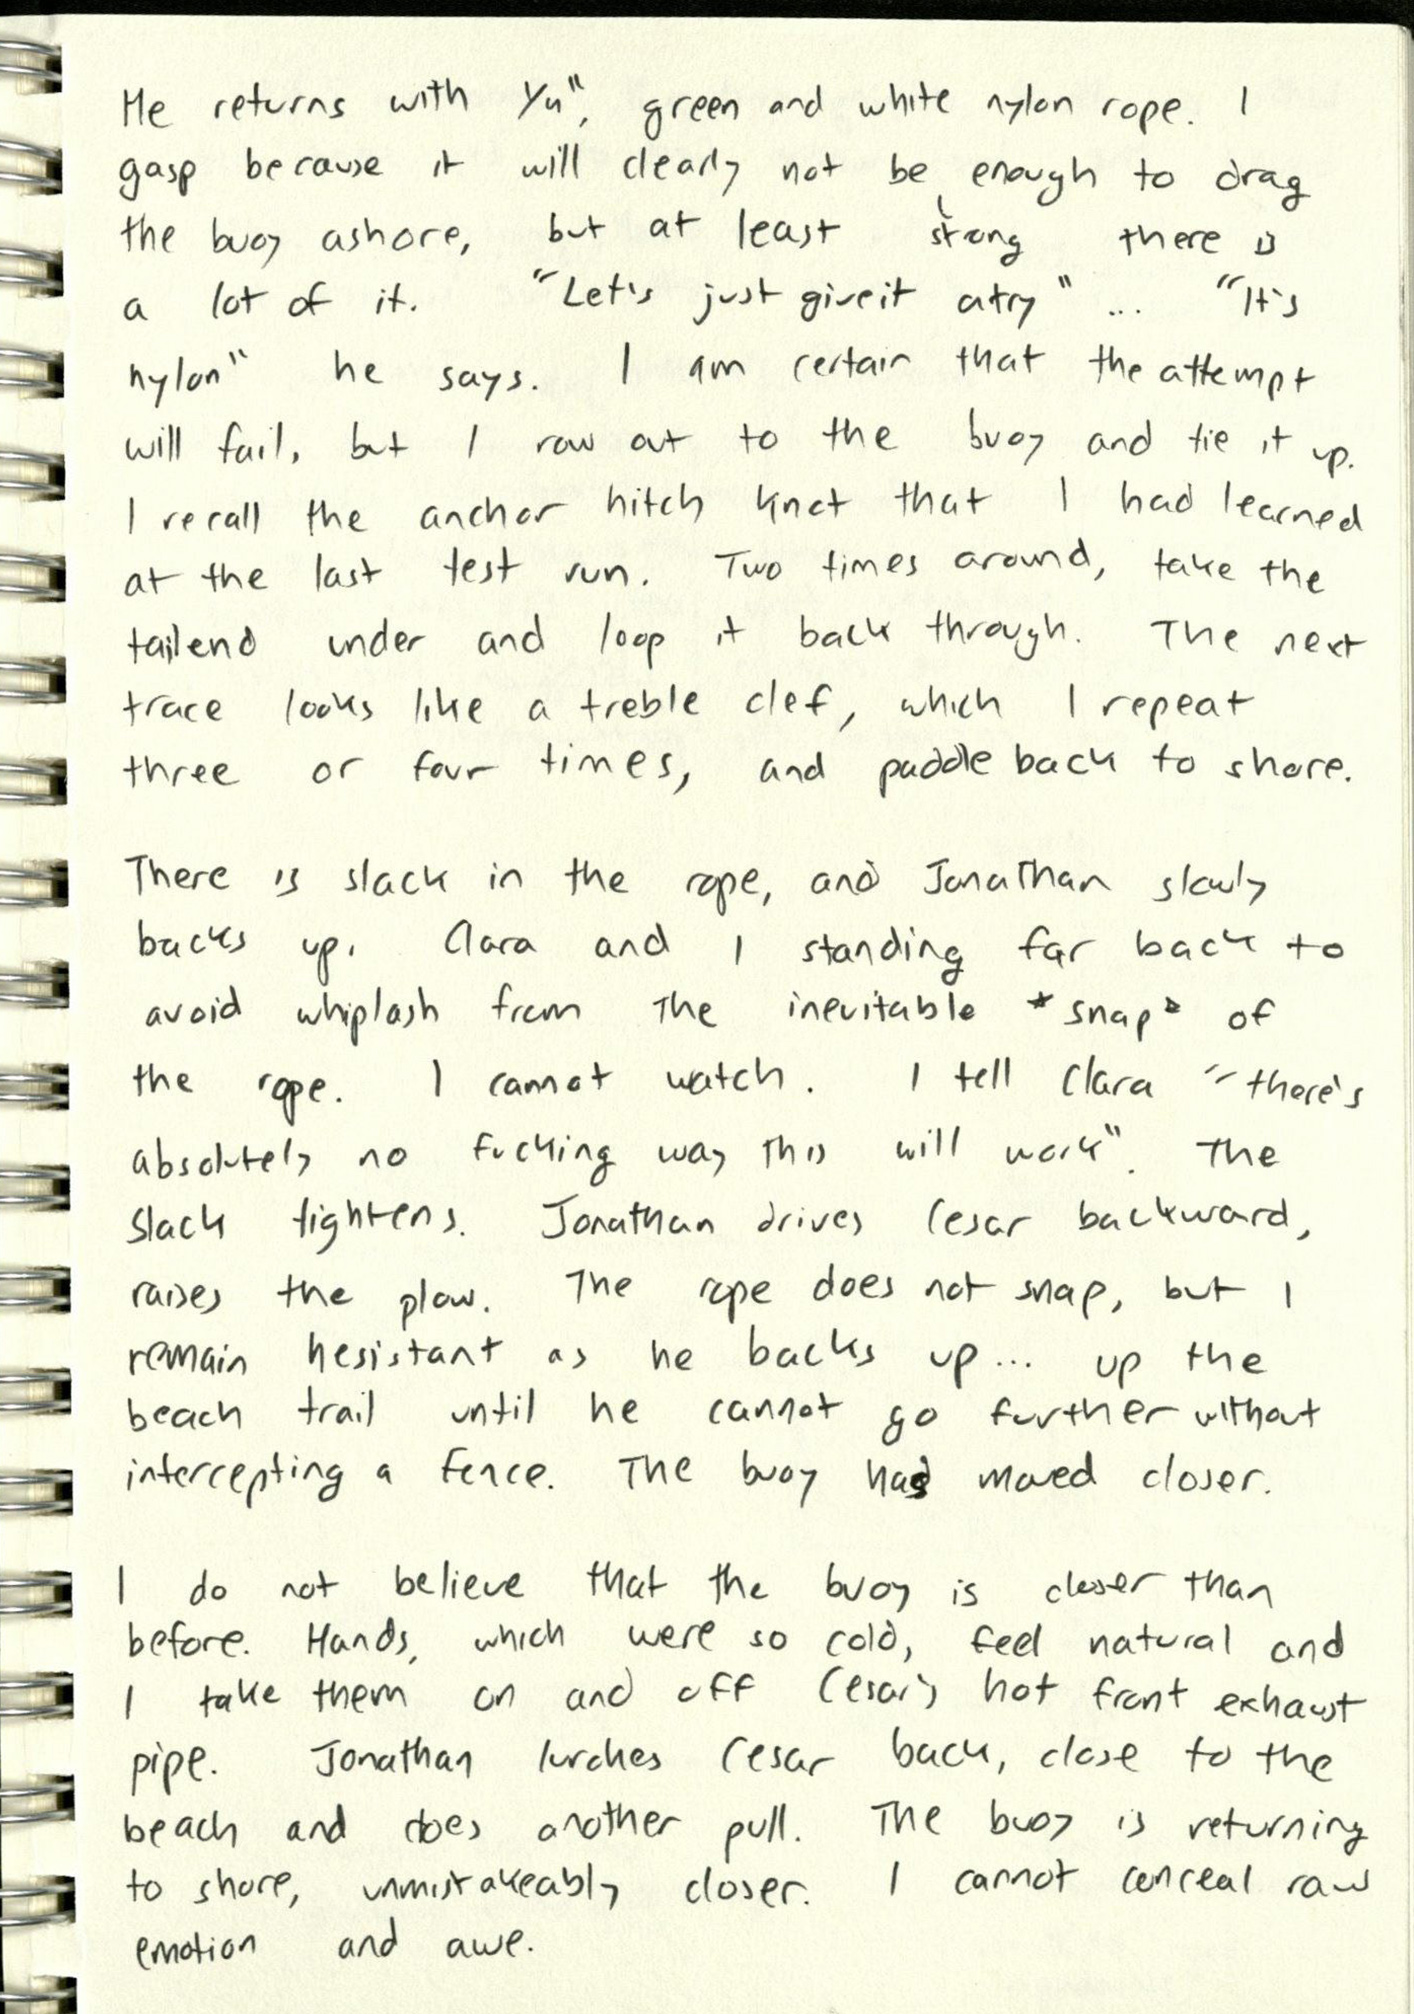 He returns with 1/4", green and white nylon rope. I
gasp because it will clearly not be enough to drag
the buoy ashore, but at least strong there is
a lot of it. "Let's just give it a try" ... "It's
nylon" he says. I am certain that the attempt
will fail, but I row out to the buoy and tie it up.
I recall the anchor hitch knot that I had learned
at the last test run. Two times around, take the
tail end under and loop it back through. The next
trace looks like a treble clef, which I repeat
three or four times, and paddle back to shore.
There is slack in the rope, and Jonathan slowly
backs up. Clara and I standing far back to
avoid whiplash from the inevitable *snap* of
the rope. I cannot watch. I tell Clara "there's
absolutely no fucking way this will work". The
slack tightens. Jonathan drives Cesar backward,
raises the plow. The rope does not snap, but I
remain hesistant as he backs up... up the
beach trail until he cannot go further without
intercepting a fence. The buoy has moved closer.
I do not believe that the buoy is closer than
before. Hands, which were so cold, feel natural and
I take them on and off Cesar's hot front exhaust
pipe. Jonathan lurches Cesar back, close to the
beach and does another pull. The buoy is returning
to shore, unmistakeably closer. I cannot conceal raw
emotion and awe.